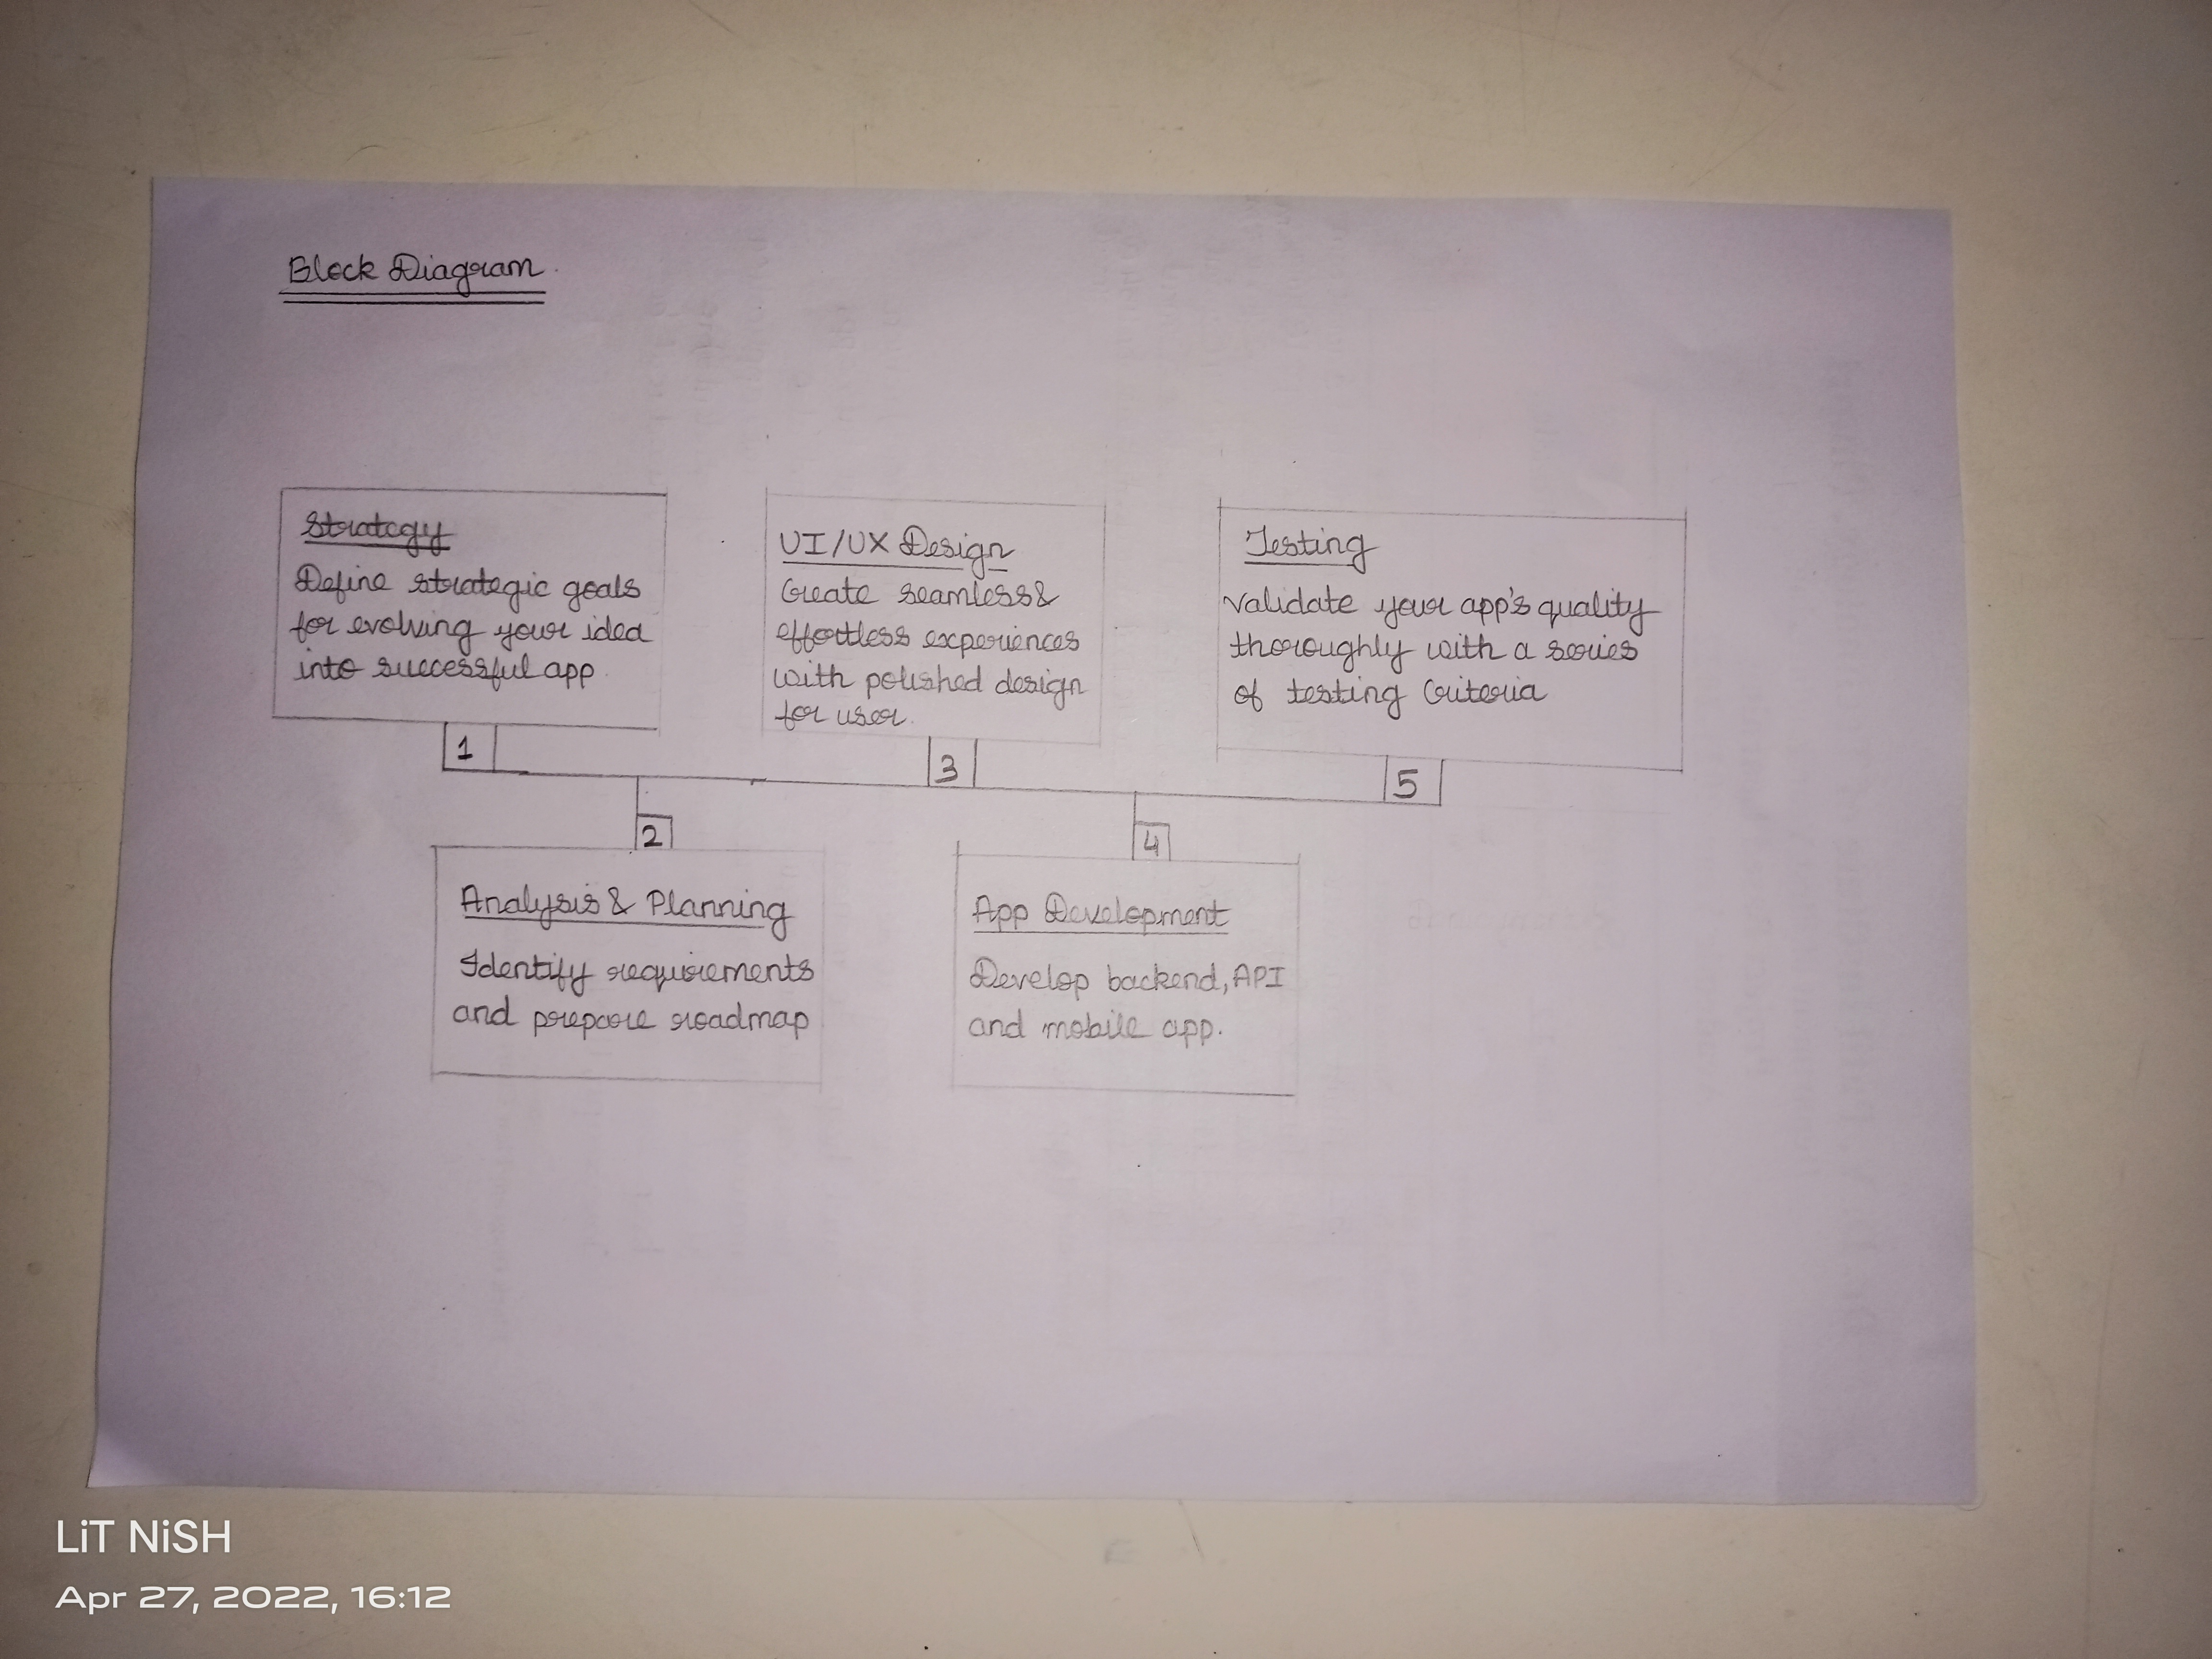 Block Diagram
Strategy
Define strategic goals
for evolving your idea
into successful app
UI/UX Design
Create seamless &
effortless experiences
with polished design
for user.
Testing
Validate your app's quality
thoroughly with a series
of testing Criteria
1
3
5
2
4
Analysis & Planning
Identify requirements
and prepare roadmap
App Development
Develop backend, API
and mobile app.
LiT NiSH
Apr 27, 2022, 16:12